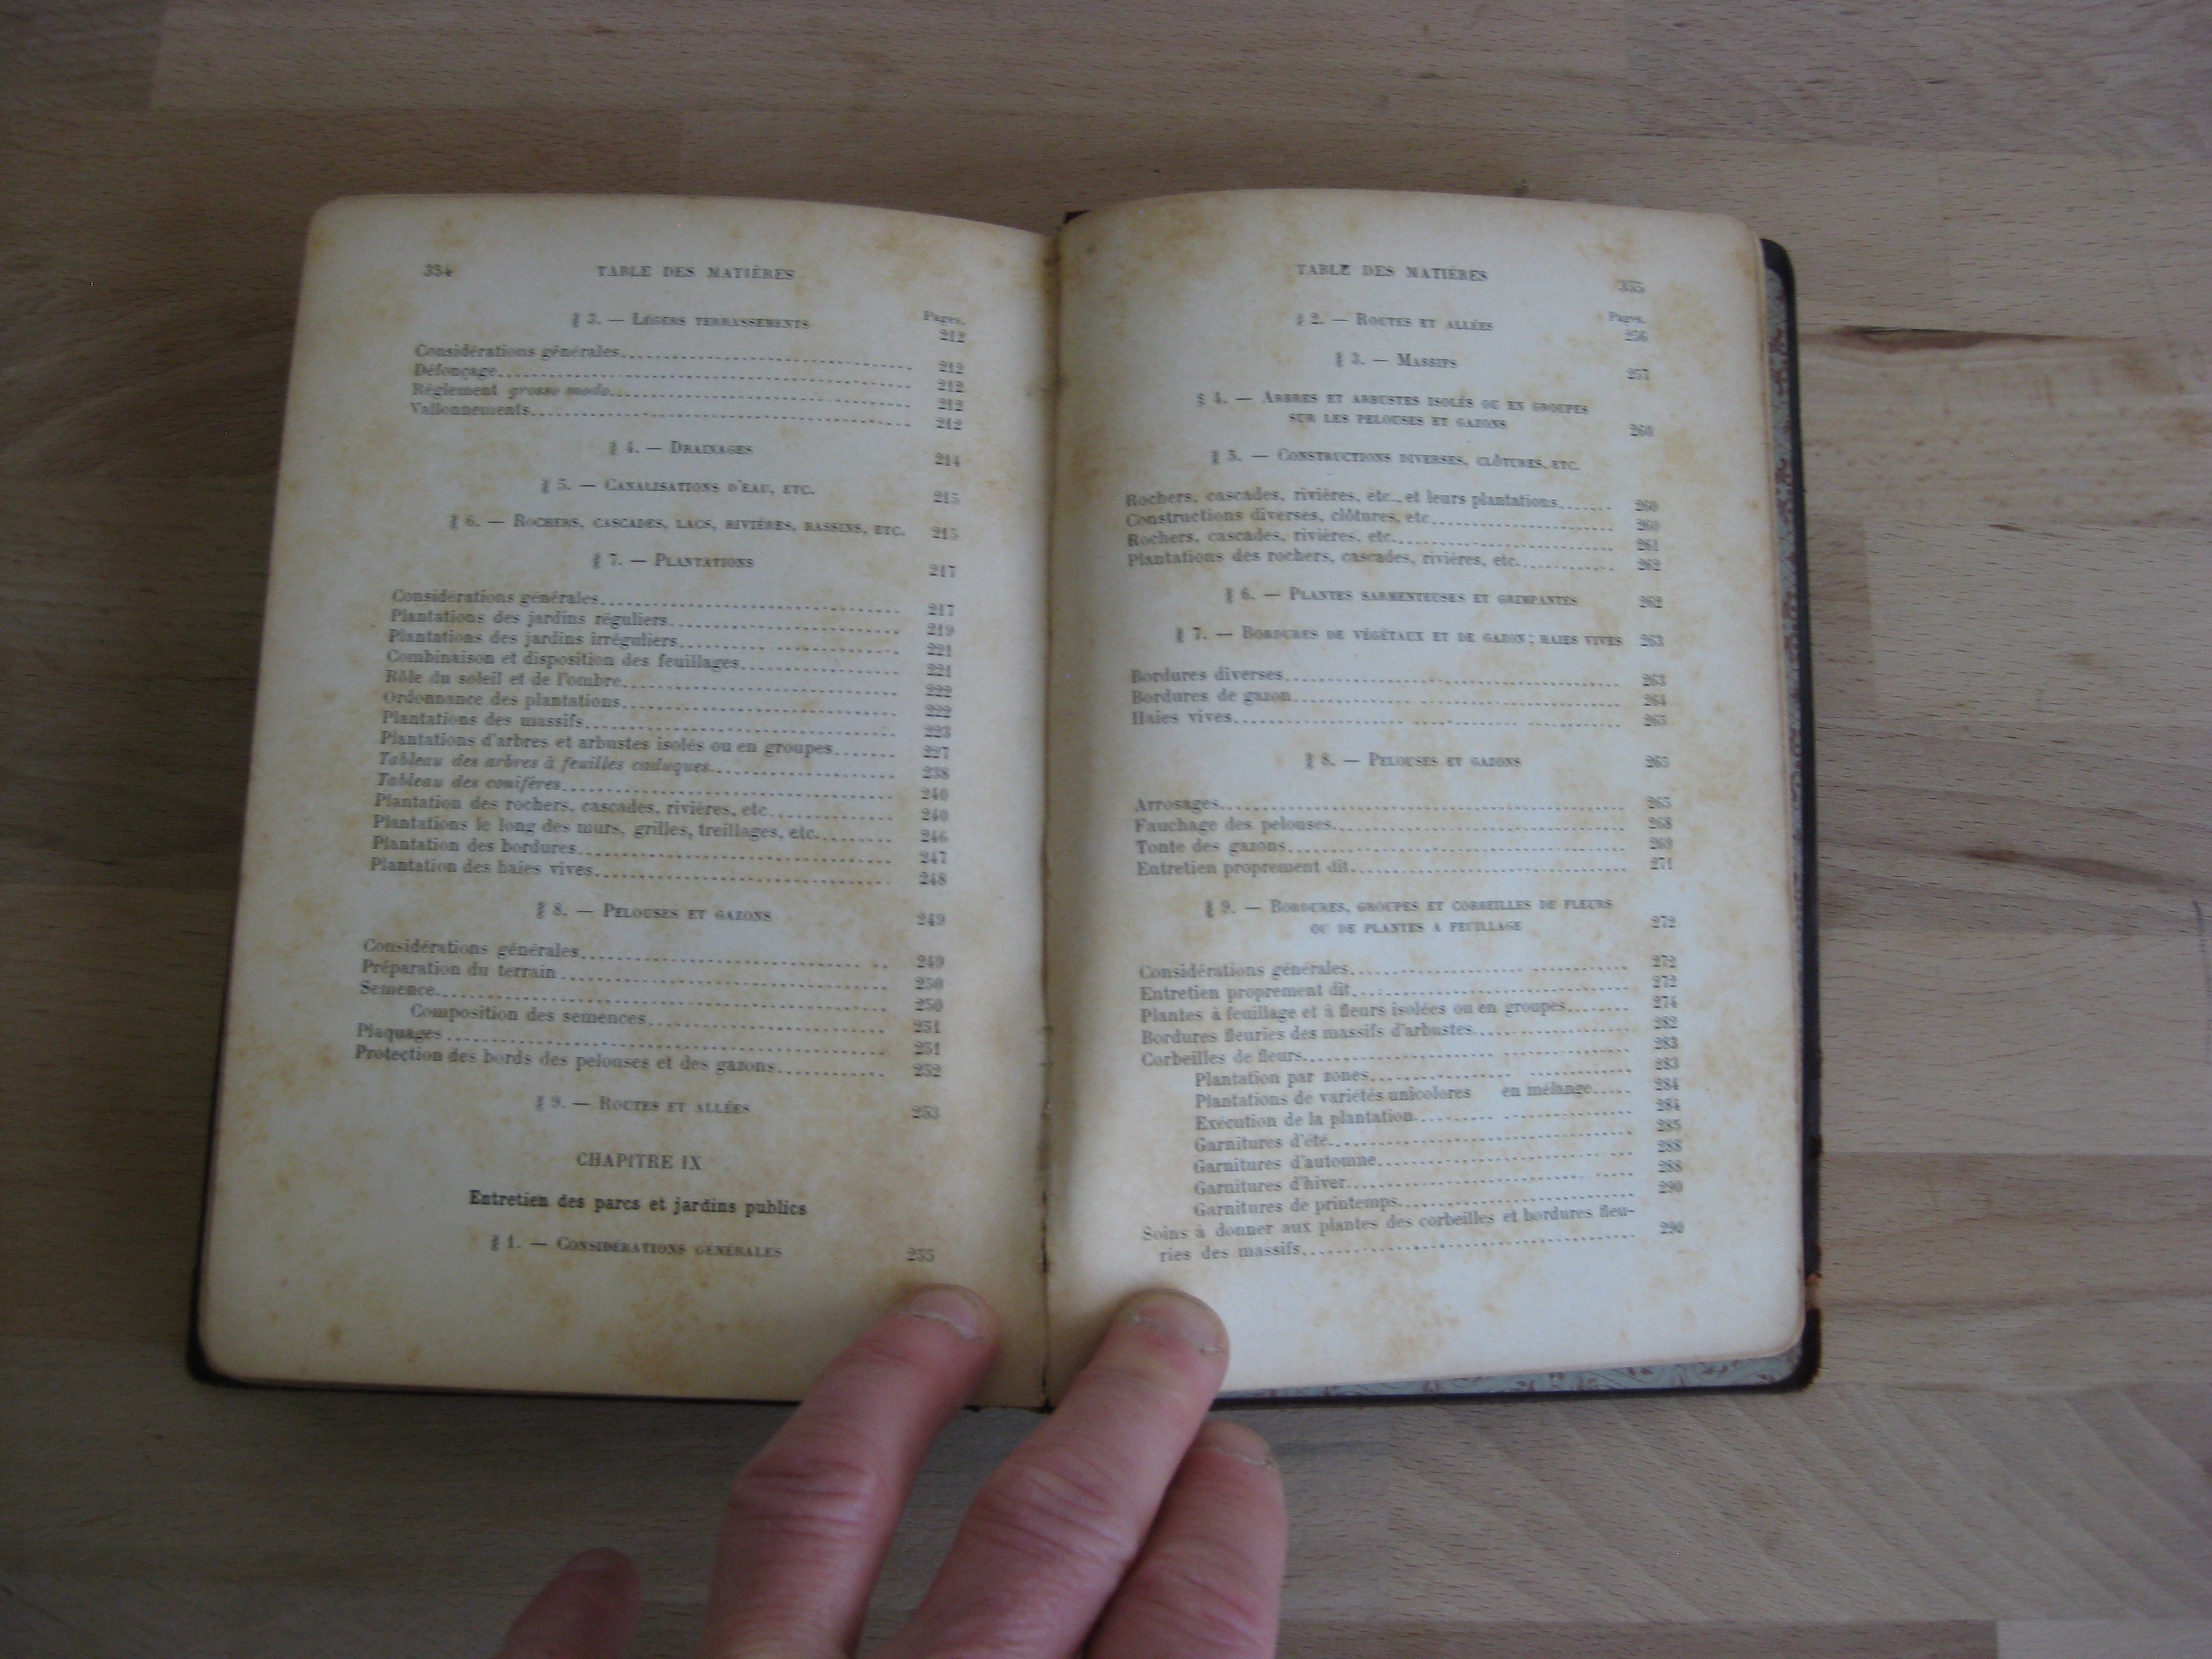 354 TABLE DES MATIÈRES
Pages.
§ 3. — LÉGERS TERRASSEMENTS 212
Considérations générales 212
Défonçage 212
Règlement grosso modo 212
Vallonnements 212
§ 4. — DRAINAGES 214
§ 5. — CANALISATIONS D'EAU, ETC. 215
§ 6. — ROCHERS, CASCADES, LACS, RIVIÈRES, BASSINS, ETC. 215
§ 7. — PLANTATIONS 217
Considérations générales 217
Plantations des jardins réguliers 219
Plantations des jardins irréguliers 221
Combinaison et disposition des feuillages 221
Rôle du soleil et de l'ombre 222
Ordonnance des plantations 222
Plantations des massifs 223
Plantations d'arbres et arbustes isolés ou en groupes 227
Tableau des arbres à feuilles caduques 238
Tableau des conifères 240
Plantation des rochers, cascades, rivières, etc 240
Plantations le long des murs, grilles, treillages, etc. 246
Plantation des bordures 247
Plantation des haies vives 248
§ 8. — PELOUSES ET GAZONS 249
Considérations générales 249
Préparation du terrain 250
Semence 250
Composition des semences 251
Plaquages 251
Protection des bords des pelouses et des gazons 252
§ 9. — ROUTES ET ALLÉES 253
CHAPITRE IX
Entretien des parcs et jardins publics
§ 1. — CONSIDÉRATIONS GÉNÉRALES 255
TABLE DES MATIÈRES 355
Pages.
§ 2. — ROUTES ET ALLÉES 256
§ 3. — MASSIFS 257
§ 4. — ARBRES ET ARBUSTES ISOLÉS OU EN GROUPES
SUR LES PELOUSES ET GAZONS 260
§ 5. — CONSTRUCTIONS DIVERSES, CLÔTURES, ETC.
Rochers, cascades, rivières, etc., et leurs plantations 260
Constructions diverses, clôtures, etc 260
Rochers, cascades, rivières, etc. 261
Plantations des rochers, cascades, rivières, etc. 262
§ 6. — PLANTES SARMENTEUSES ET GRIMPANTES 262
§ 7. — BORDURES DE VÉGÉTAUX ET DE GAZON; HAIES VIVES 263
Bordures diverses 263
Bordures de gazon 264
Haies vives 265
§ 8. — PELOUSES ET GAZONS 265
Arrosages 265
Fauchage des pelouses 268
Tonte des gazons 269
Entretien proprement dit 271
§ 9. — BORDURES, GROUPES ET CORBEILLES DE FLEURS
OU DE PLANTES A FEUILLAGE 272
Considérations générales 272
Entretien proprement dit 272
Plantes à feuillage et à fleurs isolées ou en groupes 274
Bordures fleuries des massifs d'arbustes 282
Corbeilles de fleurs 283
Plantation par zones 283
Plantations de variétés unicolores en mélange 284
Exécution de la plantation 284
Garnitures d'été 285
Garnitures d'automne 288
Garnitures d'hiver 288
Garnitures de printemps 290
Soins à donner aux plantes des corbeilles et bordures fleu-
ries des massifs 290